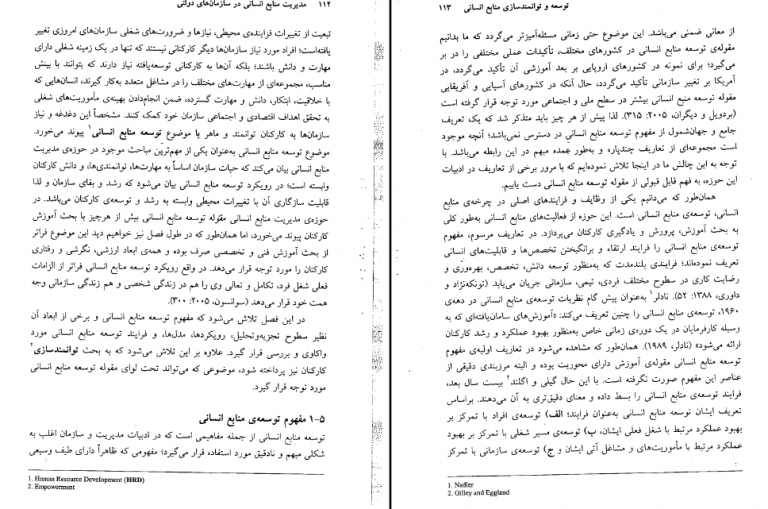 ۱۱۲ مدیریت منابع انسانی در سازمان‌های دولتی
تبعیت از تغییرات فراینده‌ی محیطی، نیازها و ضرورت‌های شغلی سازمان‌های امروزی تغییر
یافته‌است؛ افراد مورد نیاز سازمان‌ها دیگر کارکنانی نیستند که تنها در یک زمینه شغلی دارای
مهارت و دانش باشند؛ بلکه آن‌ها به کارکنانی توسعه‌یافته نیاز دارند که بتوانند با بینش
مناسب، مجموعه‌ای از مهارت‌های مختلف را در مشاغل متعدد به‌کار گیرند، انسان‌هایی که
با خلاقیت، ابتکار، دانش و مهارت گسترده، ضمن انجام‌دادن بهینه‌ی مأموریت‌های شغلی
به تحقق اهداف اقتصادی و اجتماعی سازمان خود کمک کنند. مشخصاً این دغدغه و نیاز
سازمان‌ها به کارکنان توانمند و ماهر با موضوع توسعه منابع انسانی۱ پیوند می‌خورد.
موضوع توسعه منابع انسانی به‌عنوان یکی از مهم‌ترین مباحث موجود در حوزه‌ی مدیریت
منابع انسانی بیان می‌کند که حیات سازمان اساساً به مهارت‌ها، توانمندی‌ها، و دانش کارکنان
وابسته است؛ در رویکرد توسعه منابع انسانی بیان می‌شود که رشد و بقای سازمان و لذا
قابلیت سازگاری آن با تغییرات محیطی وابسته به رشد و توسعه‌ی کارکنان می‌باشد. در
حوزه‌ی مدیریت منابع انسانی مقوله توسعه منابع انسانی بیش از هرچیز با بحث آموزش
کارکنان پیوند می‌خورد، اما همان‌طور که در طول فصل نیز خواهیم دید این موضوع فراتر
از بحث آموزش فنی و تخصصی صرف بوده و همه‌ی ابعاد ارزشی، نگرشی و رفتاری
کارکنان را مورد توجه قرار می‌دهد. در واقع رویکرد توسعه منابع انسانی فراتر از الزامات
فعلی شغل فرد، تکامل و تعالی وی را هم در زندگی شخصی و هم زندگی سازمانی وجه
همت خود قرار می‌دهد (سوانسون، ۲۰۰۵: ۳۰۰).
در این فصل تلاش می‌شود که مفهوم توسعه منابع انسانی و برخی از ابعاد آن
نظیر سطوح تجزیه‌وتحلیل، رویکردها، مدل‌ها، و فرایند توسعه منابع انسانی مورد
واکاوی و بررسی قرار گیرد. علاوه بر این تلاش می‌شود که به بحث توانمندسازی۲
کارکنان نیز پرداخته شود، موضوعی که می‌تواند تحت لوای مقوله توسعه منابع انسانی
مورد توجه قرار گیرد.
۵-۱ مفهوم توسعه‌ی منابع انسانی
توسعه منابع انسانی از جمله مفاهیمی است که در ادبیات مدیریت و سازمان اغلب به
شکلی مبهم و نادقیق مورد استفاده قرار می‌گیرد؛ مفهومی که ظاهراً دارای طیف وسیعی
1. Human Resource Development (HRD)
2. Empowerment
توسعه و توانمندسازی منابع انسانی ۱۱۳
از معانی ضمنی می‌باشد. این موضوع حتی زمانی مسئله‌آمیزتر می‌گردد که ما بدانیم
مقوله‌ی توسعه منابع انسانی در کشورهای مختلف، تأکیدات عملی مختلفی را در بر
می‌گیرد؛ برای نمونه در کشورهای اروپایی بر بعد آموزشی آن تأکید می‌گردد، در
آمریکا بر تغییر سازمانی تأکید می‌گردد، حال آنکه در کشورهای آسیایی و آفریقایی
مقوله توسعه منبع انسانی بیشتر در سطح ملی و اجتماعی مورد توجه قرار گرفته است
(بردویل و دیگران، ۲۰۰۵: ۳۱۵). لذا پیش از هر چیز باید متذکر شد که یک تعریف
جامع و جهان‌شمول از مفهوم توسعه منابع انسانی در دسترس نمی‌باشد؛ آنچه موجود
است مجموعه‌ای از تعاریف چندپاره و به‌طور عمده مبهم در این رابطه می‌باشد. با
توجه به این چالش ما در اینجا تلاش نموده‌ایم که با مرور برخی از تعاریف در ادبیات
این حوزه، به فهم قابل قبولی از مقوله توسعه منابع انسانی دست یابیم.
همان‌طور که می‌دانیم یکی از وظایف و فرایندهای اصلی در چرخه‌ی منابع
انسانی، توسعه‌ی منابع انسانی است. این حوزه از فعالیت‌های منابع انسانی به‌طور کلی
به بحث آموزش، پرورش و یادگیری کارکنان می‌پردازد. در تعاریف مرسوم، مفهوم
توسعه‌ی منابع انسانی را فرایند ارتقاء و برانگیختن تخصص‌ها و قابلیت‌های انسانی
تعریف نموده‌اند؛ فرایندی بلندمدت که به‌منظور توسعه دانش، تخصص، بهره‌وری و
رضایت کاری در سطوح مختلف فردی، تیمی، سازمانی جریان می‌یابد (تونکه‌نژاد و
داوری، ۱۳۸۸: ۵۲). نادلر۱ به‌عنوان پیش گام نظریات توسعه‌ی منابع انسانی در دهه‌ی
۱۹۶۰، توسعه‌ی منابع انسانی را چنین تعریف می‌کند: «آموزش‌های سامان‌یافته‌ای که به
وسیله کارفرمایان در یک دوره‌ی زمانی خاص به‌منظور بهبود عملکرد و رشد کارکنان
ارائه می‌شود» (نادلر، ۱۹۸۹). همان‌طور که مشاهده می‌شود در تعاریف اولیه‌ی مفهوم
توسعه منابع انسانی مقوله‌ی آموزش دارای محوریت بوده و البته مرزبندی دقیقی از
عناصر این مفهوم صورت نگرفته است. با این حال گیلی و اگلند۲ بیست سال بعد،
فرایند توسعه‌ی منابع انسانی را بسط داده و معنای دقیق‌تری به آن می‌دهند. براساس
تعریف ایشان توسعه منابع انسانی به‌عنوان فرایند؛ الف) توسعه‌ی افراد با تمرکز بر
بهبود عملکرد مرتبط با شغل فعلی ایشان، ب) توسعه‌ی مسیر شغلی با تمرکز بر بهبود
عملکرد مرتبط با مأموریت‌های و مشاغل آتی ایشان و ج) توسعه‌ی سازمانی با تمرکز
1. Nadler
2. Gilley and Eggland